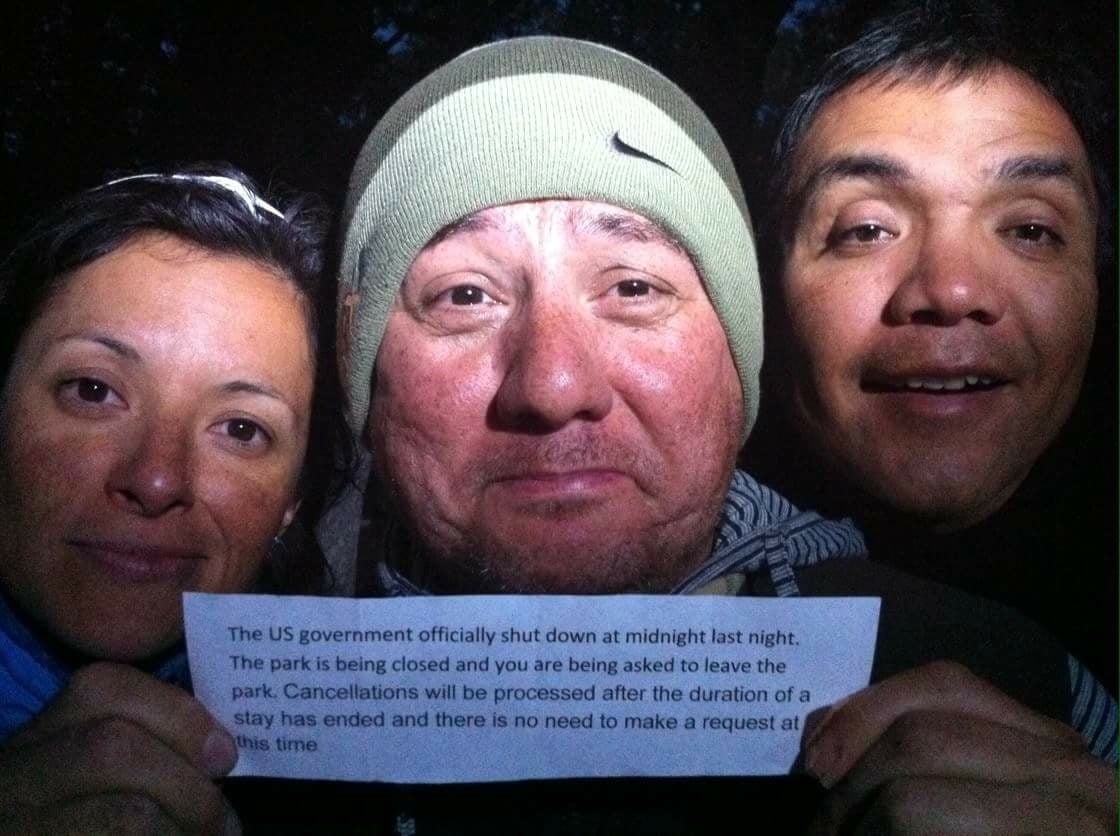 The US government officially shut down at midnight last night.
The park is being closed and you are being asked to leave the
park. Cancellations will be processed after the duration of a
stay has ended and there is no need to make a request at
this time